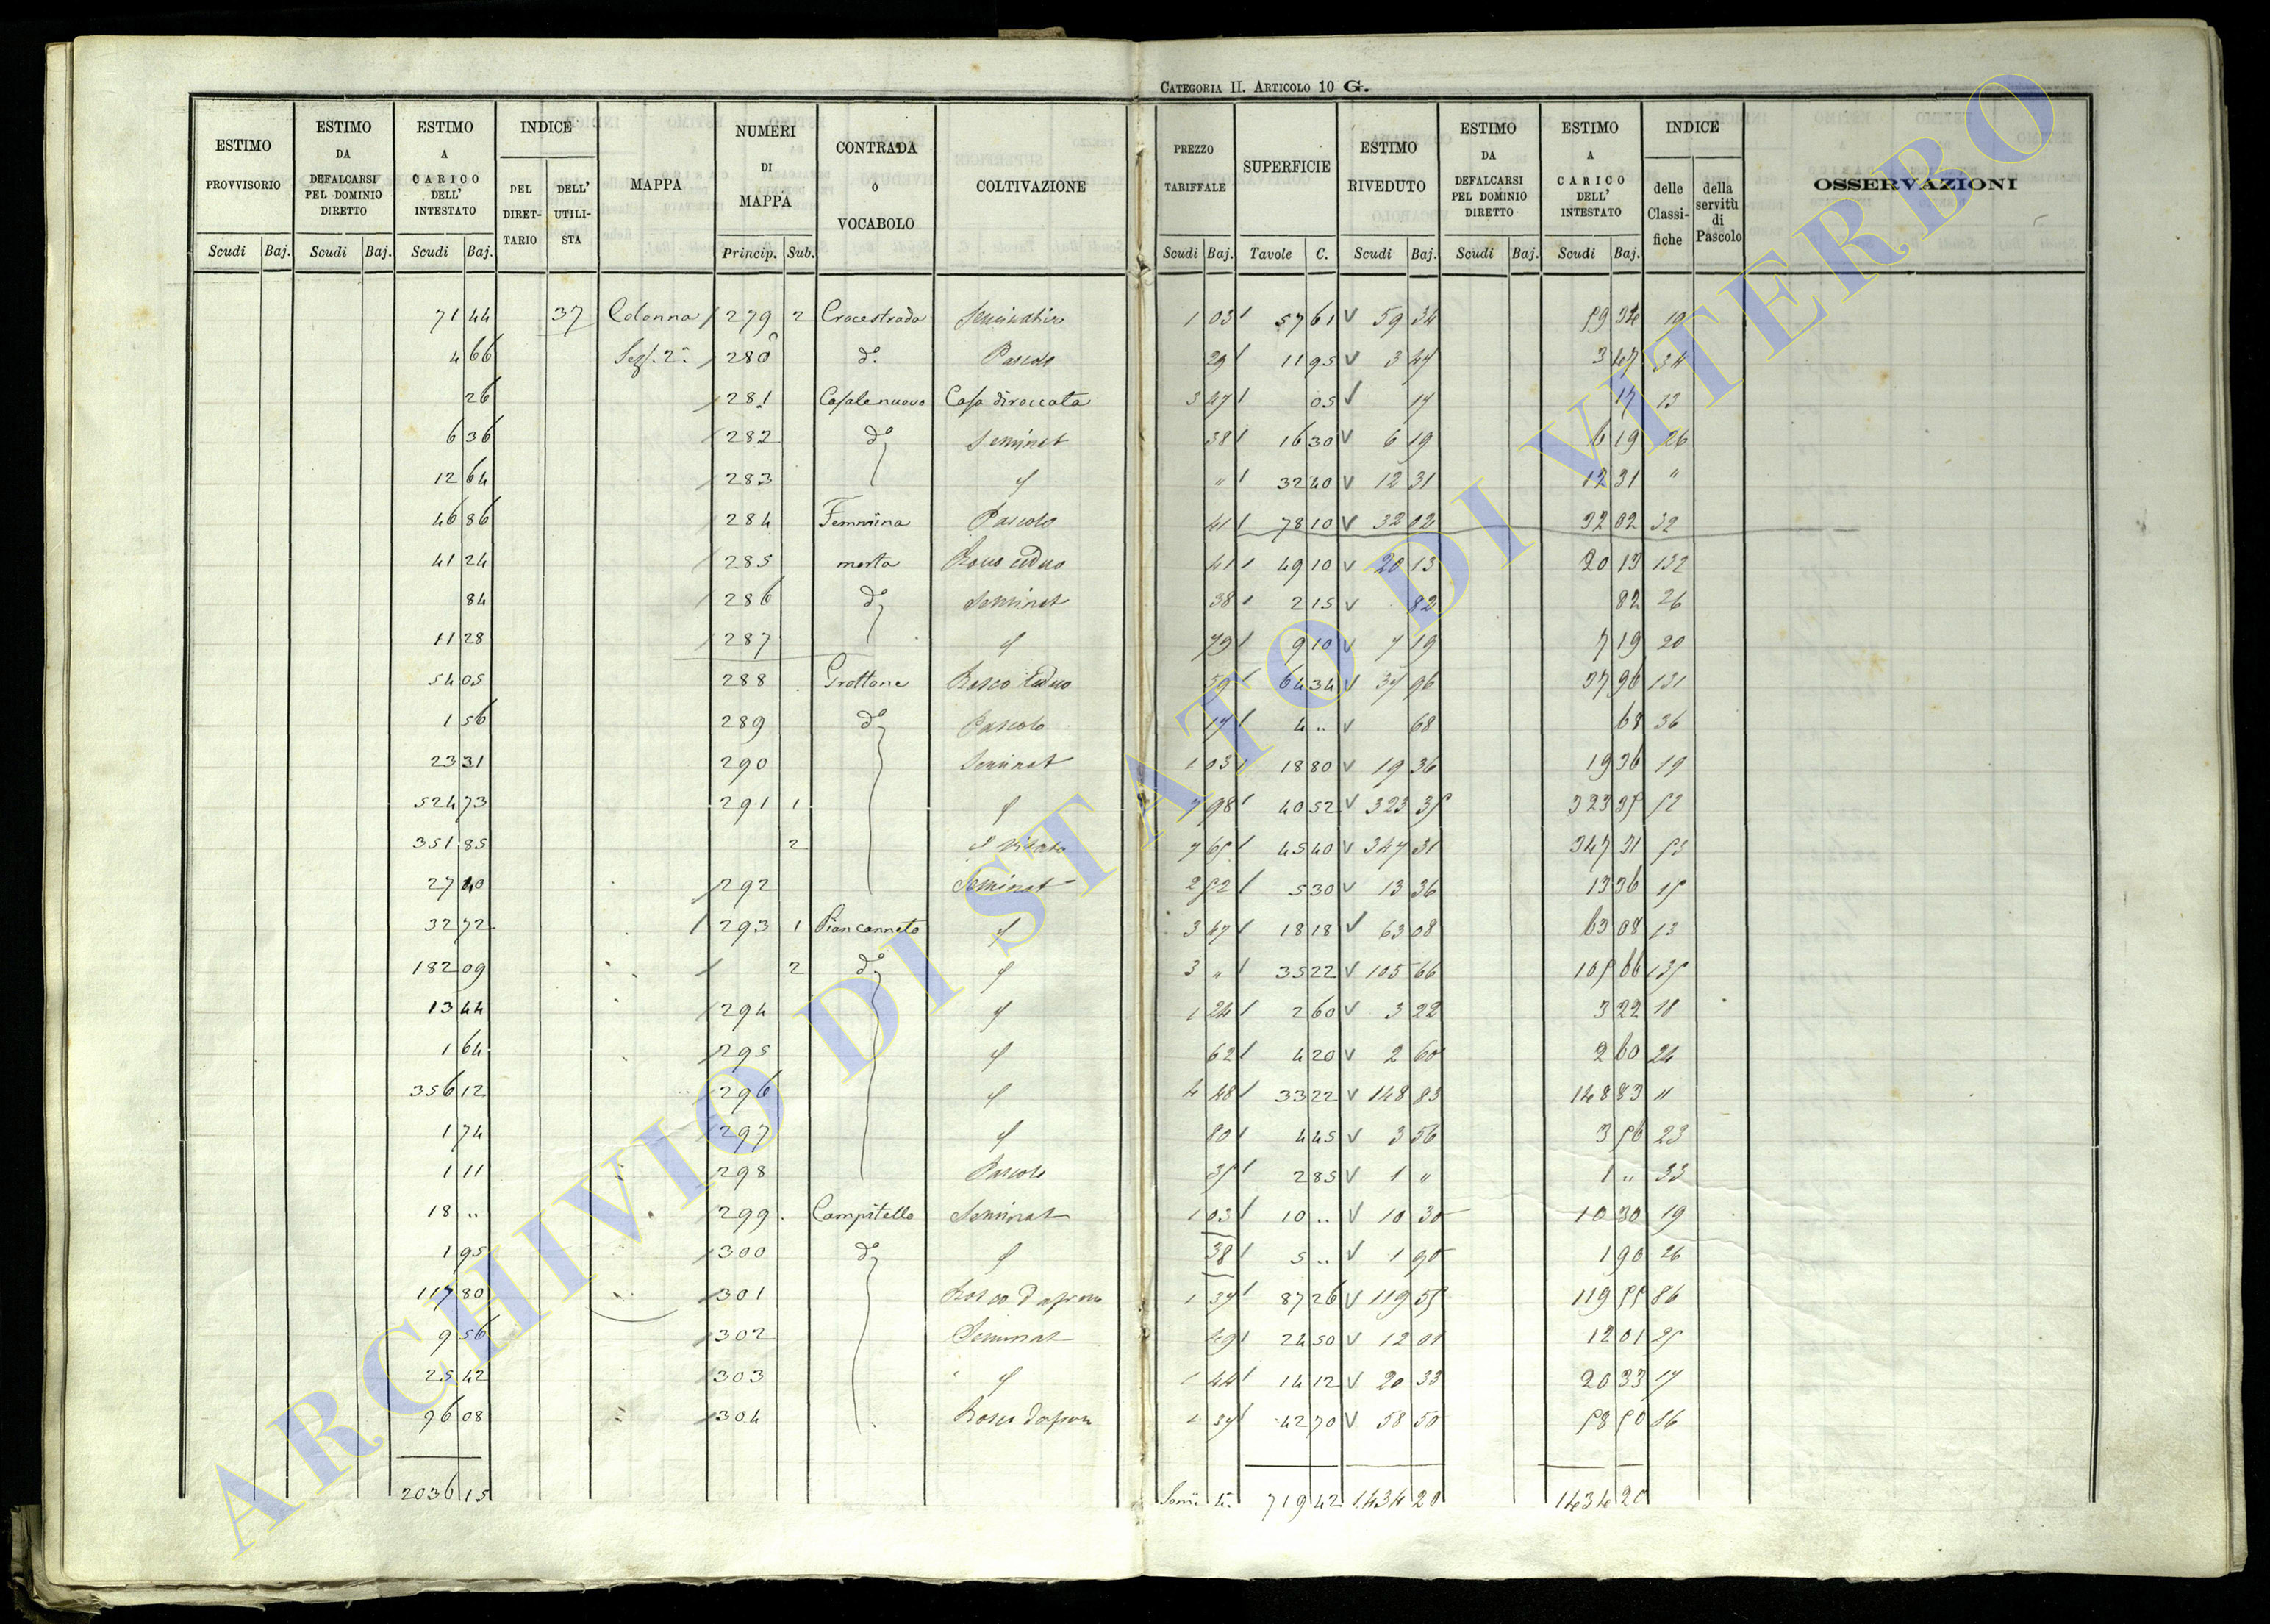 CATEGORIA II. ARTICOLO 10 G.
ESTIMO PROVVISORIO | ESTIMO DA DEFALCARSI PEL DOMINIO DIRETTO | ESTIMO A CARICO DELL' INTESTATO | INDICE | MAPPA | NUMERI DI MAPPA | CONTRADA O VOCABOLO | COLTIVAZIONE | PREZZO TARIFFALE | SUPERFICIE | ESTIMO RIVEDUTO | ESTIMO DA DEFALCARSI PEL DOMINIO DIRETTO | ESTIMO A CARICO DELL' INTESTATO | INDICE | OSSERVAZIONI
DEL DIRETTARIO | DELL' UTILISTA | delle Classifiche | della servitù di Pascolo
Scudi Baj. | Scudi Baj. | Scudi Baj. | Princip. Sub. | Scudi Baj. | Tavole C. | Scudi Baj. | Scudi Baj. | Scudi Baj.
71 44 37 Colonna 279 2 Crocestrada Seminativo 1 03 57 61 59 34 59 34 19
4 66 Sez. 2a 280 do. Pascolo 29 11 95 3 47 3 47 34
26 281 Casalenuovo Casa diroccata 3 47 05 17 17 13
6 36 282 do Seminat 38 16 30 6 19 6 19 26
12 64 283 " 32 40 12 31 12 31 "
46 86 284 Femmina Pascolo 41 78 10 32 02 32 02 32
41 24 285 morta Bosco ceduo 41 49 10 20 13 20 13 132
84 286 do Seminat 38 2 15 82 82 26
11 28 287 79 9 10 7 19 7 19 20
54 05 288 Grottone Bosco ceduo 59 64 34 37 96 37 96 131
1 56 289 do Pascolo 17 4 .. 68 68 36
23 31 290 Seminat 1 03 18 80 19 36 19 36 19
524 73 291 1 7 98 40 52 323 35 323 35 52
351 85 2 7 65 45 40 347 31 347 31 53
27 40 292 Seminat 2 52 5 30 13 36 13 36 15
32 72 293 1 Piancanneto 3 47 18 18 63 08 63 08 13
182 09 2 do 3 " 35 22 105 66 105 66 135
13 44 294 1 24 2 60 3 22 3 22 18
1 64 295 62 4 20 2 60 2 60 24
356 12 296 4 48 33 22 148 83 148 83 "
1 74 297 80 4 45 3 56 3 56 23
1 11 298 Pascolo 35 2 85 1 " 1 .. 33
18 .. 299 Campitello Seminat 1 03 10 .. 10 30 10 30 19
1 95 300 do 38 5 .. 1 90 1 90 26
117 80 301 1 37 87 26 119 55 119 55 86
9 56 302 Seminat 49 24 50 12 01 12 01 25
25 42 303 1 44 14 12 20 33 20 33 17
96 08 304 1 37 42 70 58 50 58 50 86
2036 15 719 42 1434 20 1434 20
ARCHIVIO DI STATO DI VITERBO